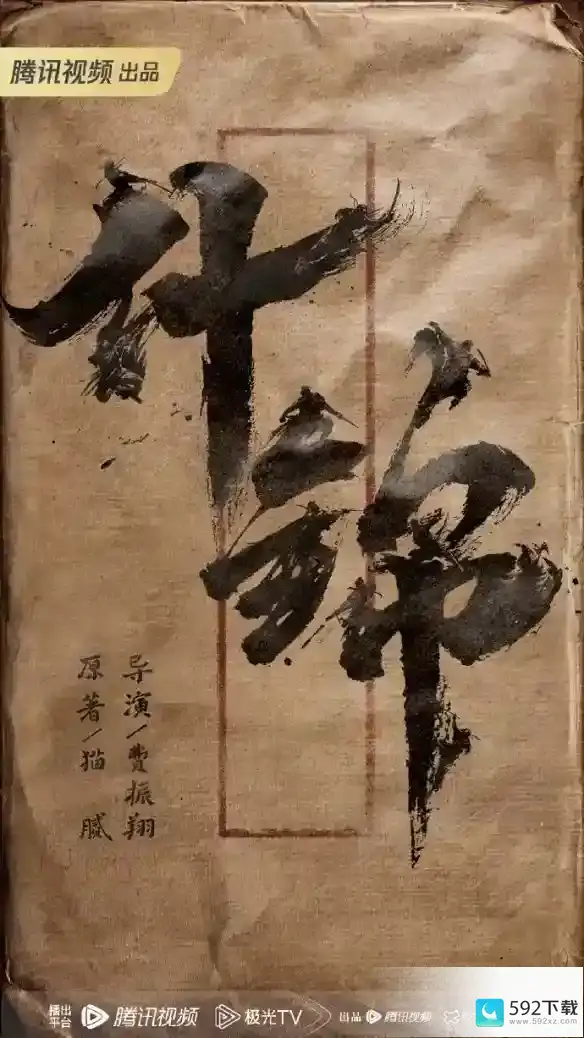 腾讯视频 出品
什锦
导演/费振翔
原著/猫腻
播出平台 腾讯视频 极光TV 出品 腾讯视频
592下载
www.592xz.com